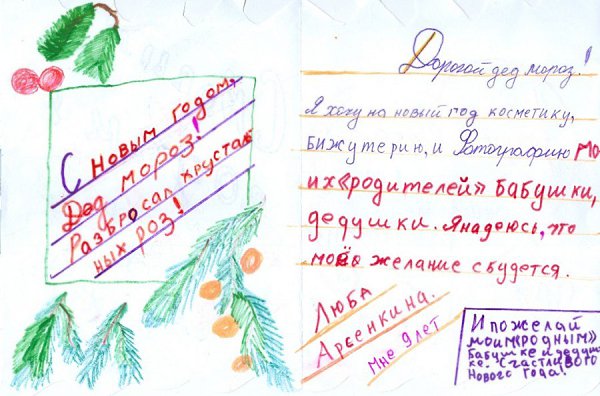 С новым годом,
Дед мороз!
Разбросал хрусталь
ных роз!
Дорогой дед мороз!
Я хочу на новый год косметику,
бижутерию, и Фотографию мо
их «родителей» бабушки,
дедушки. Я надеюсь, что
моё желание сбудется.
Люба
Арсенкина.
мне 9 лет
И пожелай
моим «родным»
бабушке и дедуш
ке. Счастливого
Нового года!